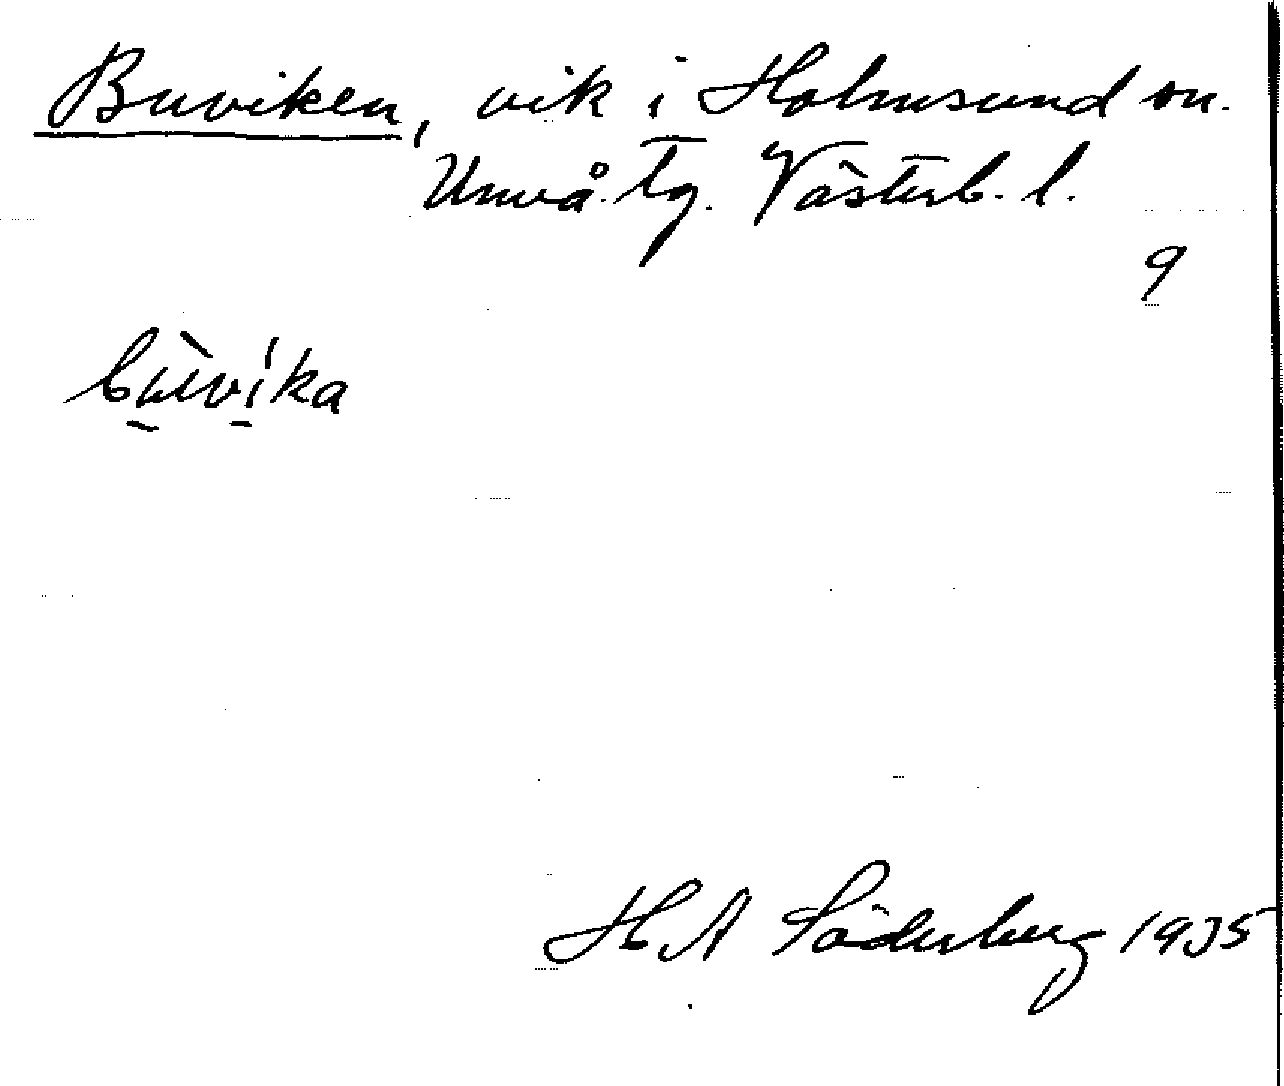 Buviken, vik i Holmsund sn.
Umeå tg. Västerb. l.
9
bù̱ví̱ka
H A Söderberg 1935